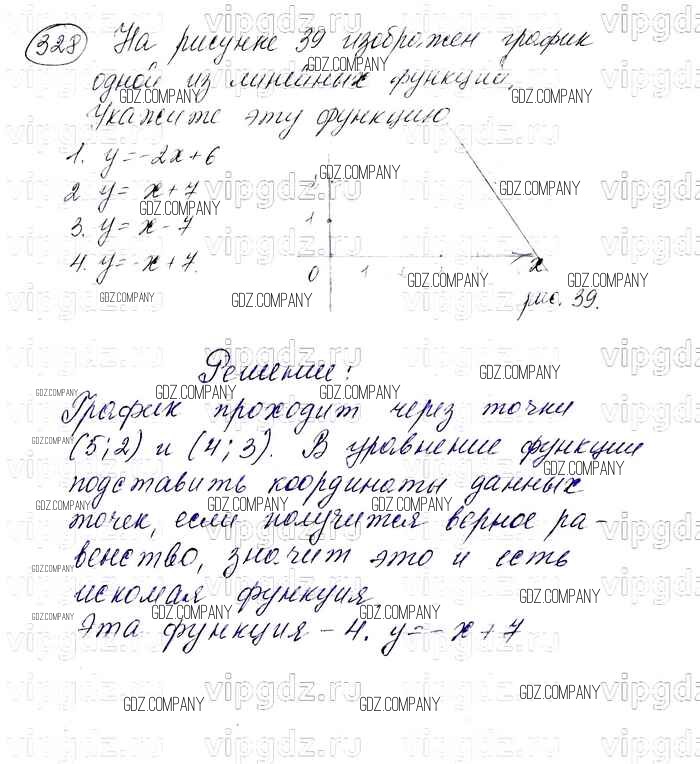 328 На рисунке 39 изображен график
одной из линейных функций.
Укажите эту функцию
1. y=-2x+6
2 y= x+7
3. y= x-7
4. y=-x+7.
1
0 1 x
рис. 39.
Решение:
График проходит через точки
(5;2) и (4;3). В уравнение функции
подставить координаты данных
точек, если получится верное ра-
венство, значит это и есть
искомая функция,
Эта функция - 4. y=-x+7
GDZ.COMPANY
vipgdz.ru